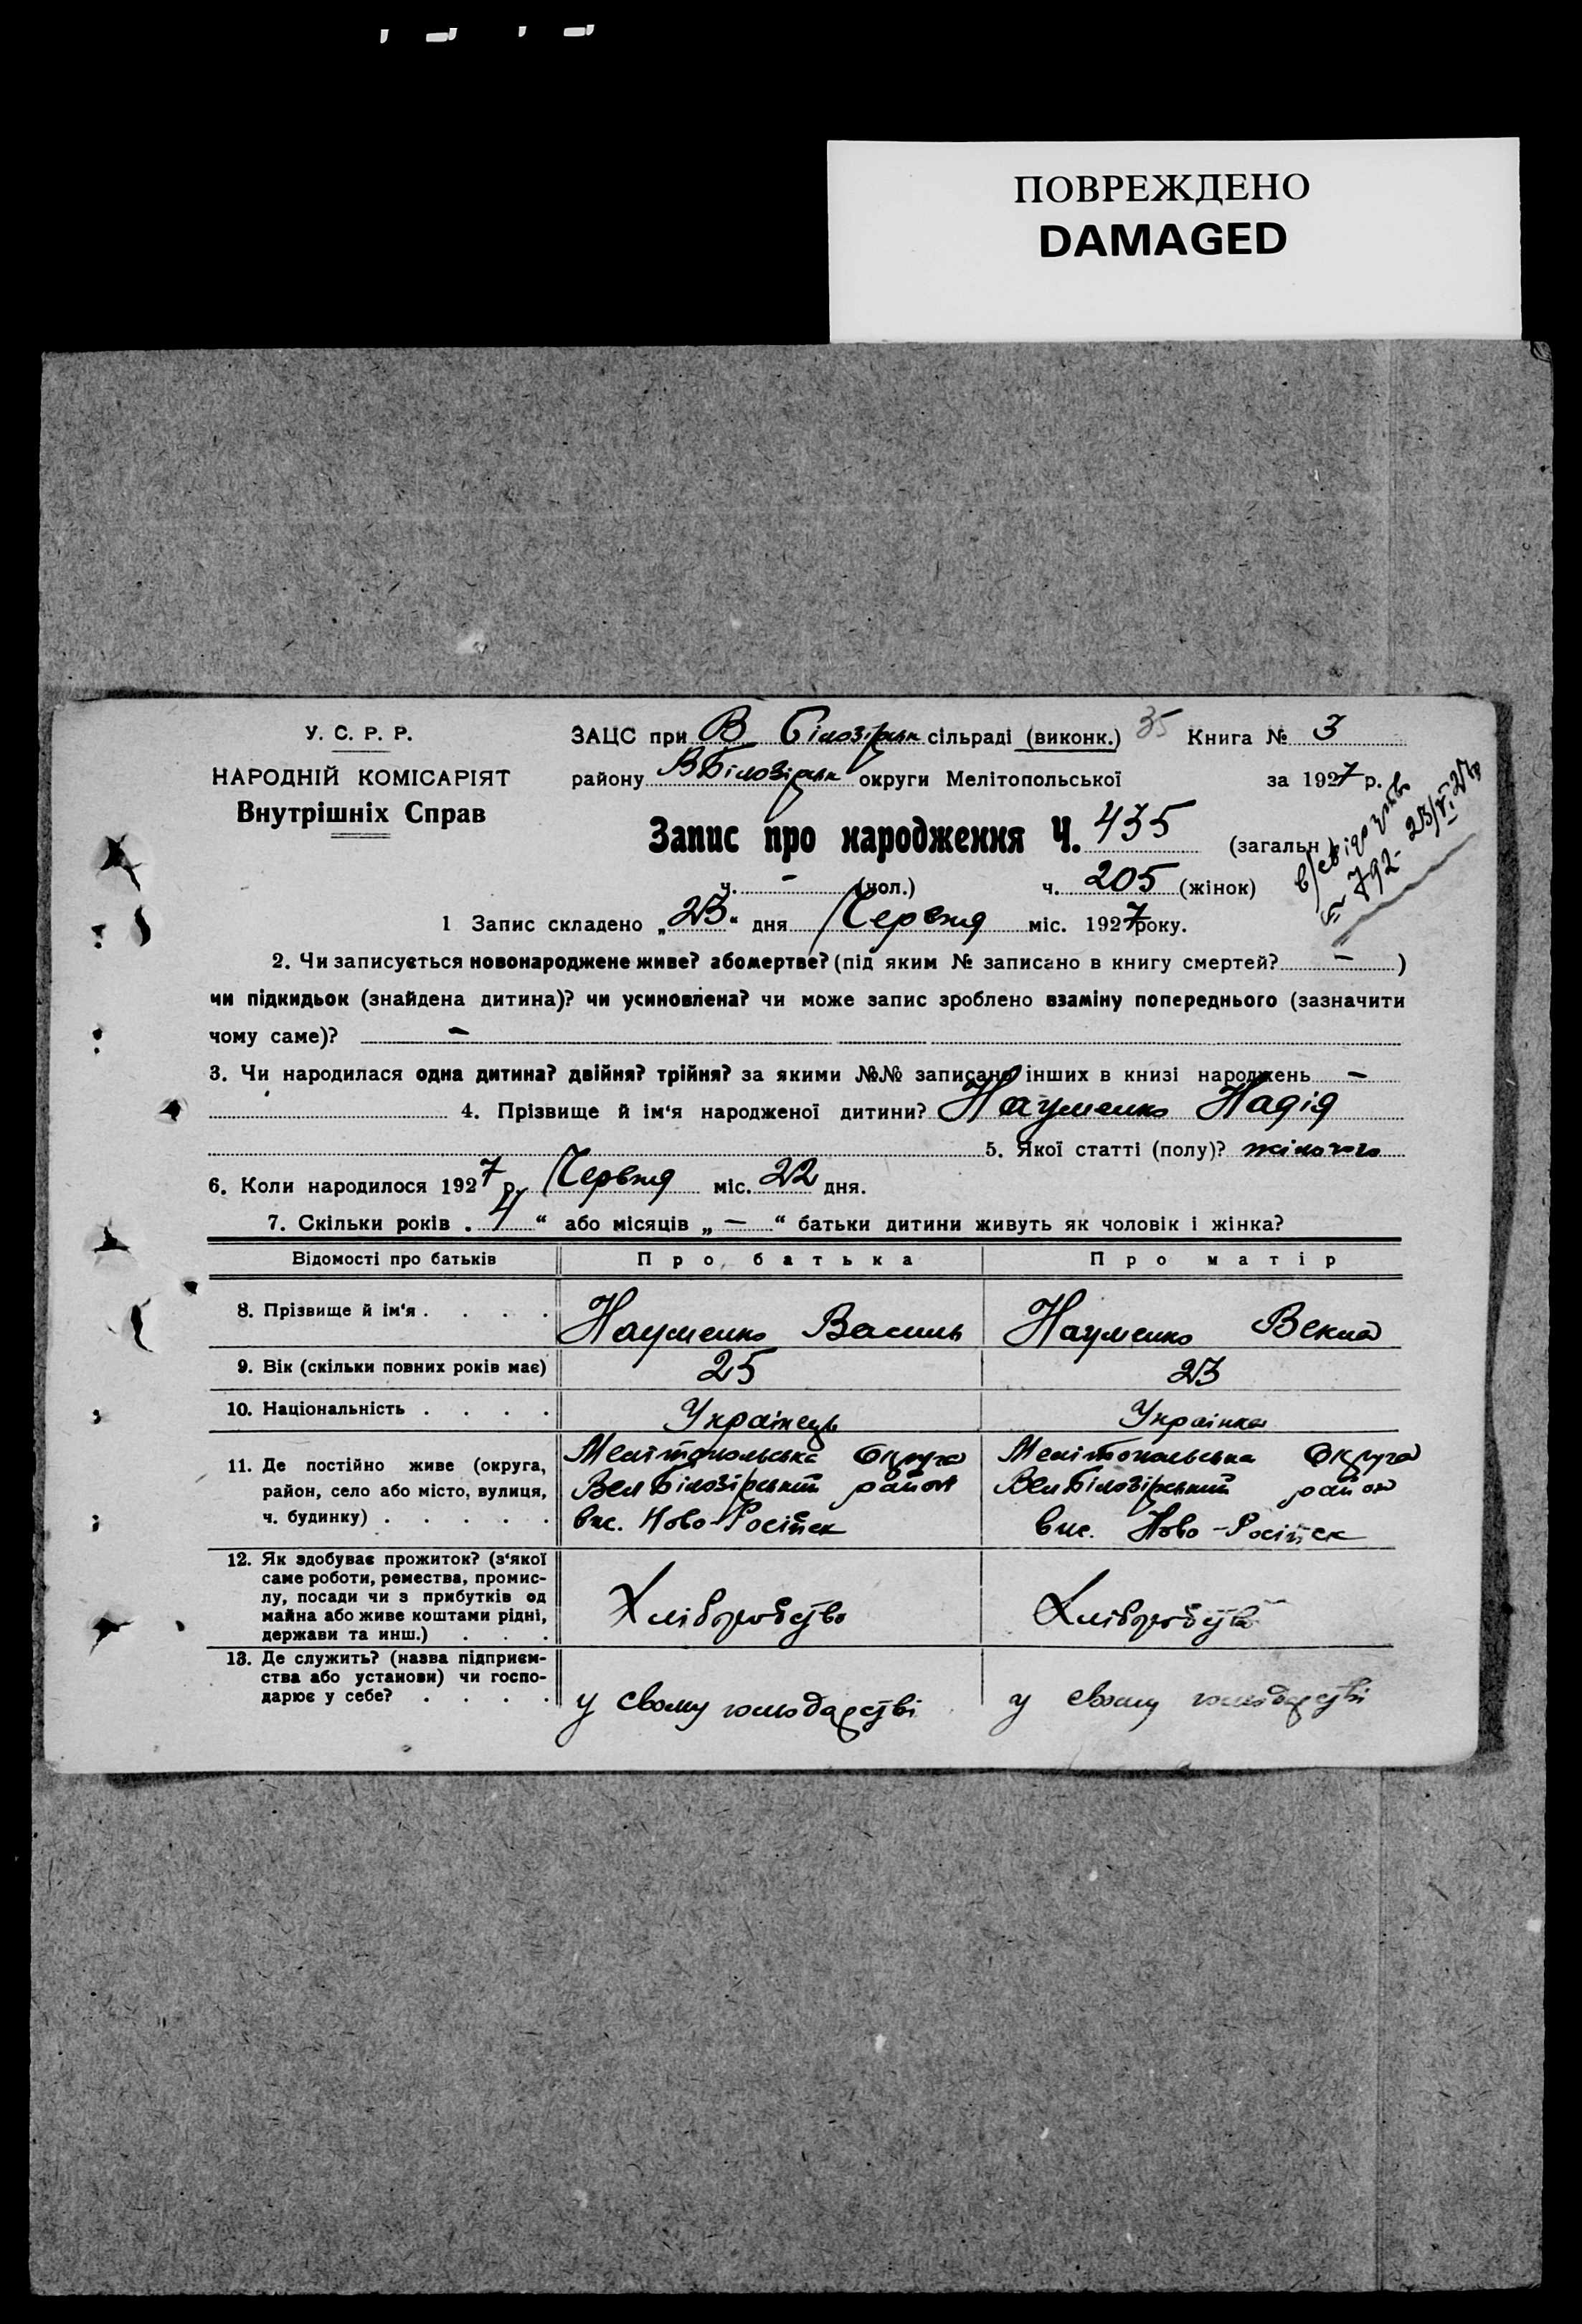 ПОВРЕЖДЕНО
DAMAGED
У. С. Р. Р.
НАРОДНІЙ КОМІСАРІЯТ
Внутрішніх Справ
ЗАЦС при В Білозірськ сільраді (виконк.) 35 Книга № 3
району В Білозірськ округи Мелітопольської за 1927 р.
Запис про народження Ч. 435 (загальн.)
ч. - (чол.) ч. 205 (жінок)
№ 792 - 23/VI 27р
1 Запис складено „23“ дня Червня міс. 1927 року.
2. Чи записується новонароджене живе? або мертве? (під яким № записано в книгу смертей? — )
чи підкидьок (знайдена дитина)? чи усиновлена? чи може запис зроблено взаміну попереднього (зазначити
чому саме)? -
3. Чи народилася одна дитина? двійня? трійня? за якими №№ записано інших в книзі народжень —
4. Прізвище й ім‘я народженої дитини? Науменко Надія
5. Якої статті (полу)? жіночого
6. Коли народилося 1927 р. Червня міс. 22 дня.
7. Скільки років „ 4 “ або місяців „ — “ батьки дитини живуть як чоловік і жінка?
Відомості про батьків Про батька Про матір
8. Прізвище й ім‘я . . . . Науменко Василь Науменко Векла
9. Вік (скільки повних років має) 25 23
10. Національність . . . . Українець Українка
11. Де постійно живе (округа, Мелітопольська Округа Мелітопольська Округа
район, село або місто, вулиця, Вел Білозірський район Вел Білозірський район
ч. будинку) . . . . . вис. Ново-Російск вис. Ново-Російск
12. Як здобуває прожиток? (з‘якої
саме роботи, ремества, промис-
лу, посади чи з прибутків од Хліборобство Хліборобство
майна або живе коштами рідні,
держави та инш.) . . .
13. Де служить? (назва підприєм-
ства або установи) чи госпо-
дарює у себе? . . . . у свому господарстві у свому господарстві